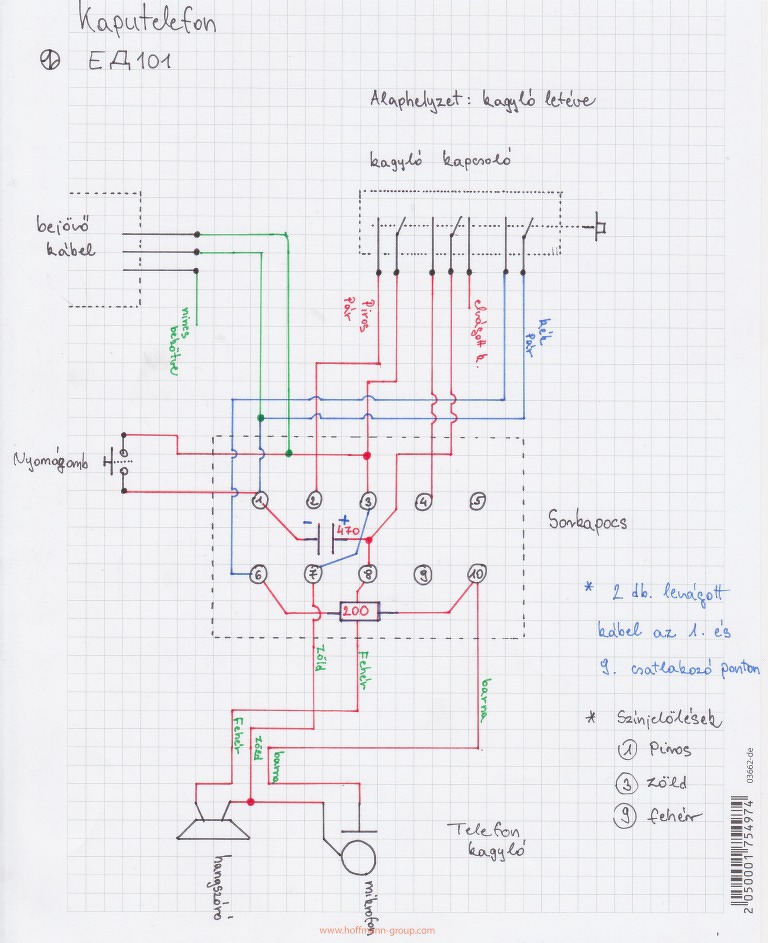 Kaputelefon
① ЕД101
Alaphelyzet: kagyló letéve
kagyló kapcsoló
bejövő
kábel
nincs
bekötve
Piros
Pár
elvágott k.
kék
Pár
Nyomógomb
1
2
3
4
5
-
+
470
Sorkapocs
6
7
8
9
10
200
* 2 db. levágott
kábel az 1. és
9. csatlakozó ponton
Zöld
Fehér
barna
Fehér
zöld
barna
* Színjelölések
① Piros
③ zöld
⑨ fehér
Telefon
kagyló
hangszóró
mikrofon
03662-de
2 050001 754974
www.hoffmann-group.com